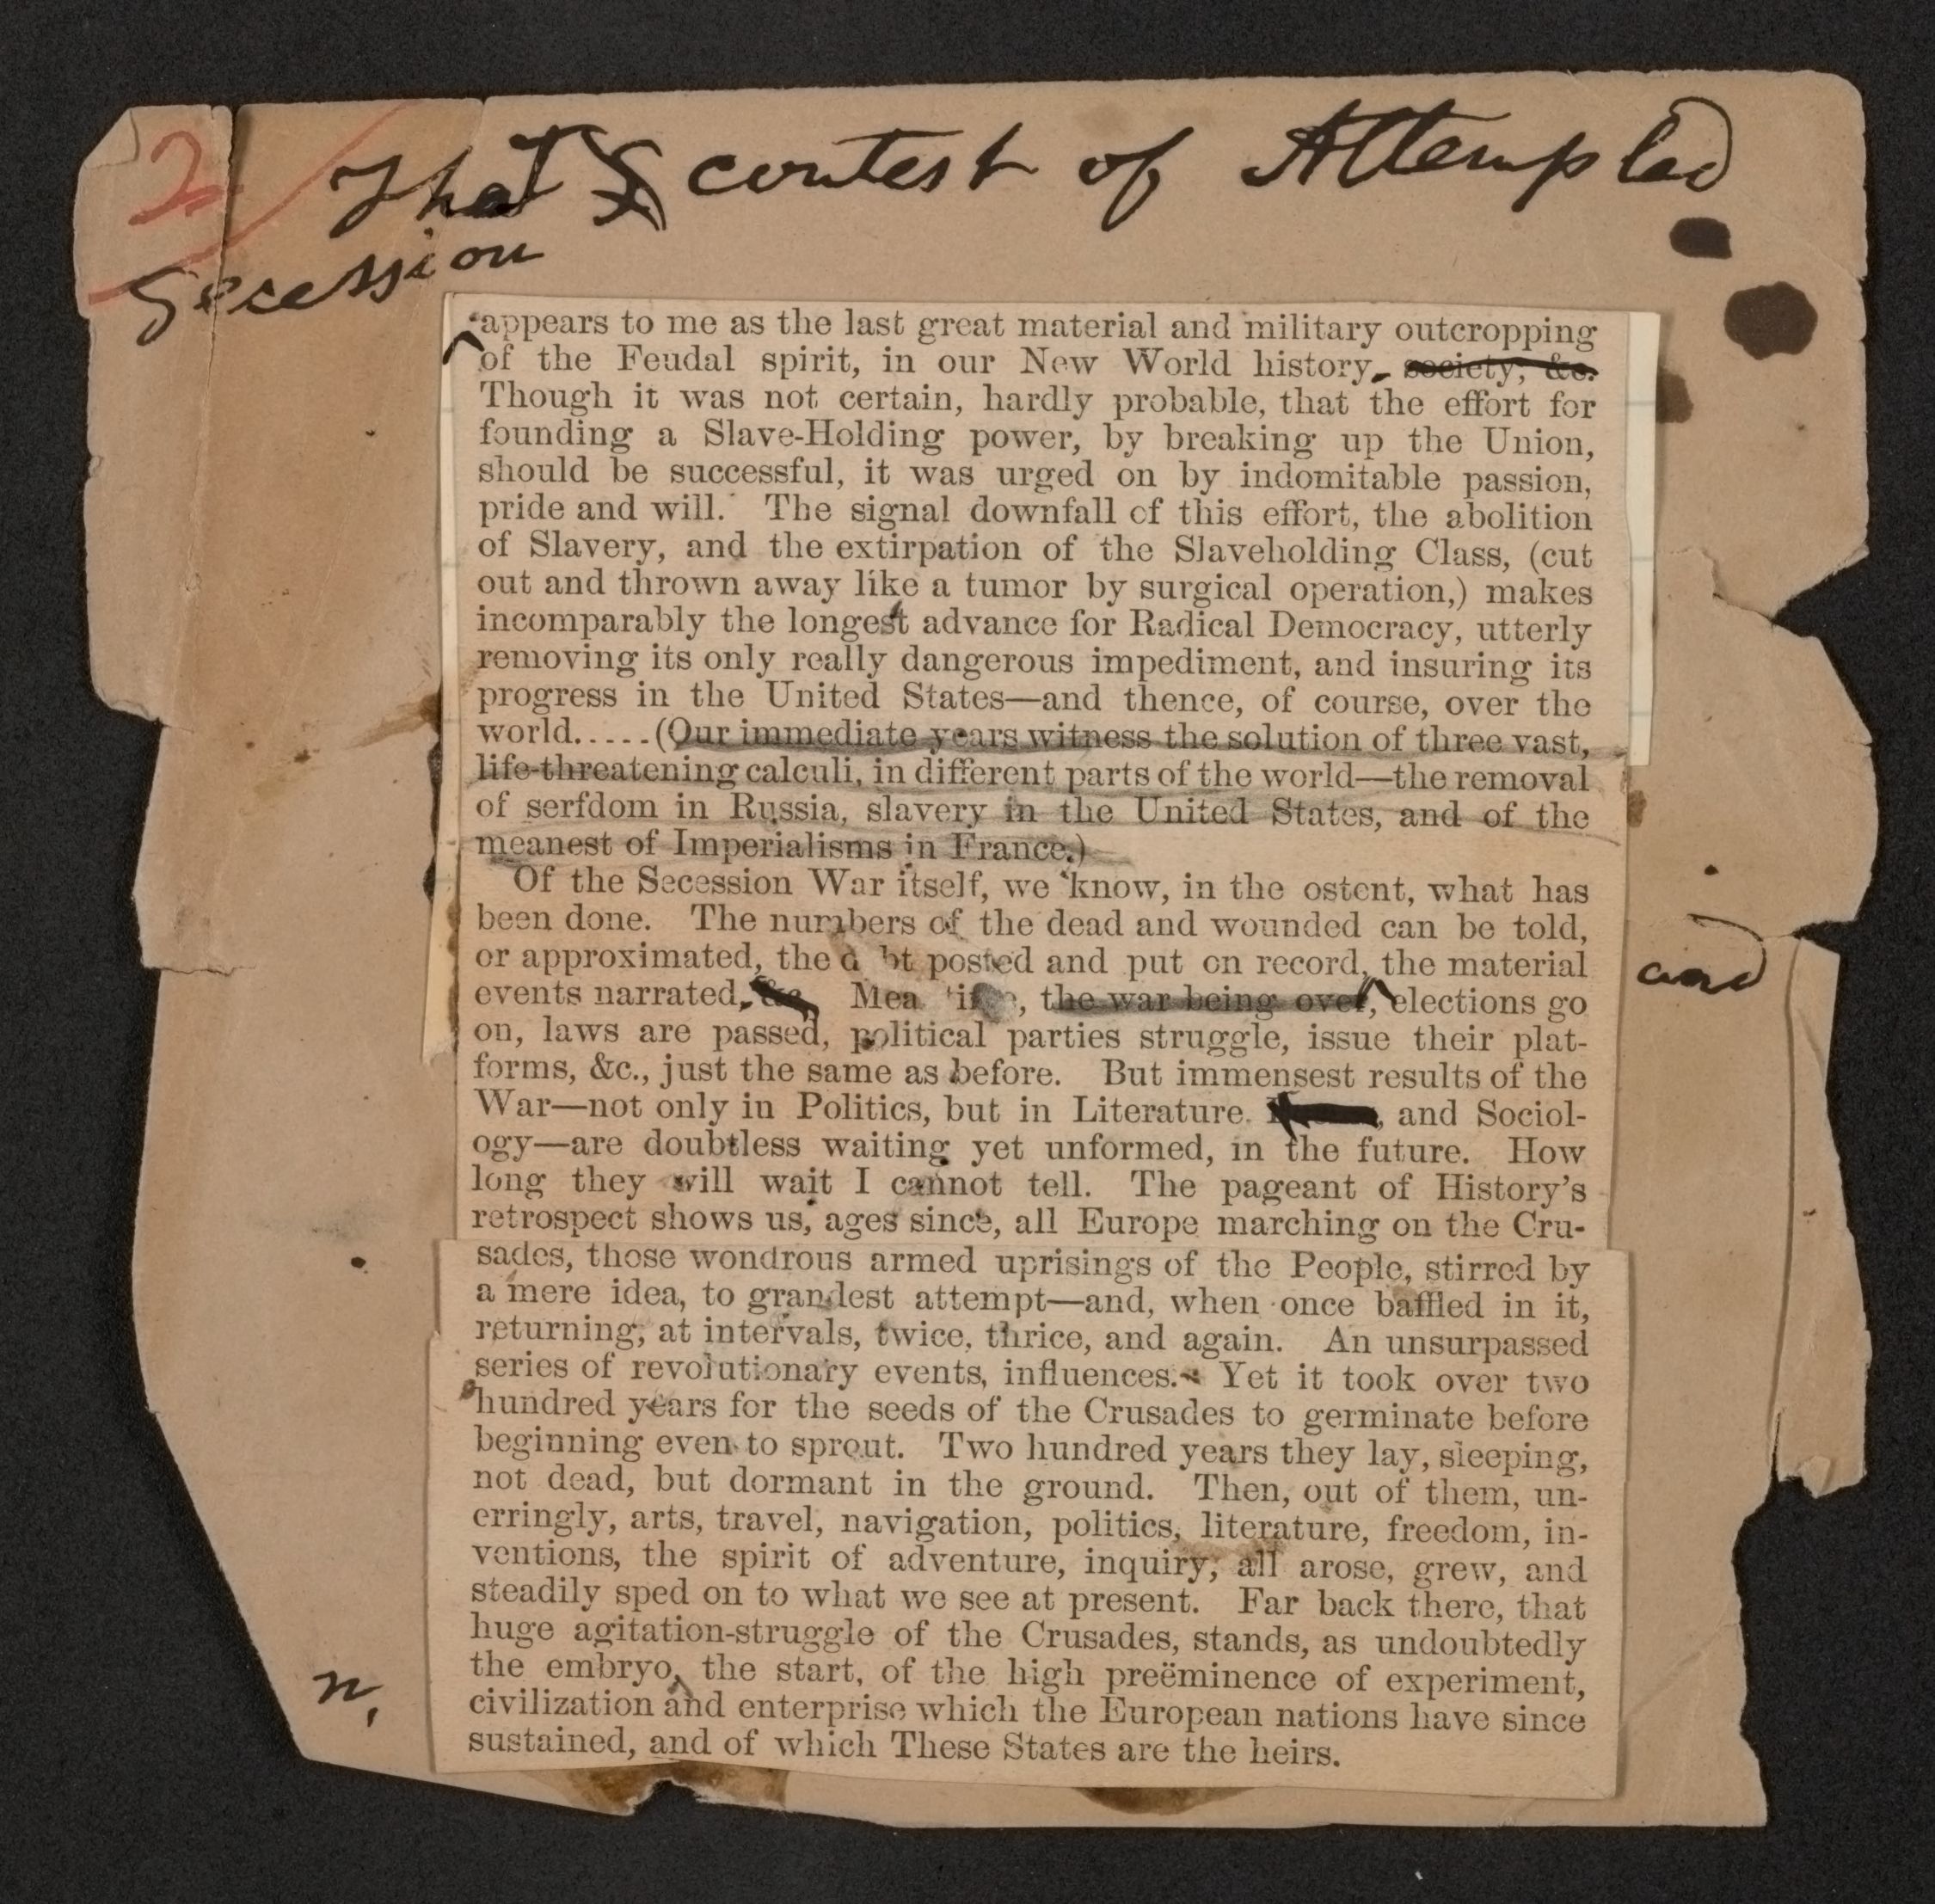 2
That contest of Attempted
Secession
appears to me as the last great material and military outcropping
of the Feudal spirit, in our New World history, society, &c.
Though it was not certain, hardly probable, that the effort for
founding a Slave-Holding power, by breaking up the Union,
should be successful, it was urged on by indomitable passion,
pride and will. The signal downfall of this effort, the abolition
of Slavery, and the extirpation of the Slaveholding Class, (cut
out and thrown away like a tumor by surgical operation,) makes
incomparably the longest advance for Radical Democracy, utterly
removing its only really dangerous impediment, and insuring its
progress in the United States—and thence, of course, over the
world.....(Our immediate years witness the solution of three vast,
life-threatening calculi, in different parts of the world—the removal
of serfdom in Russia, slavery in the United States, and of the
meanest of Imperialisms in France.)
Of the Secession War itself, we know, in the ostent, what has
been done. The numbers of the dead and wounded can be told,
or approximated, the debt posted and put on record, the material
events narrated, &c. Meantime, the war being over, elections go
and
on, laws are passed, political parties struggle, issue their plat-
forms, &c., just the same as before. But immensest results of the
War—not only in Politics, but in Literature, and Sociol-
ogy—are doubtless waiting yet unformed, in the future. How
long they will wait I cannot tell. The pageant of History's
retrospect shows us, ages since, all Europe marching on the Cru-
sades, those wondrous armed uprisings of the People, stirred by
a mere idea, to grandest attempt—and, when once baffled in it,
returning, at intervals, twice, thrice, and again. An unsurpassed
series of revolutionary events, influences. Yet it took over two
hundred years for the seeds of the Crusades to germinate before
beginning even to sprout. Two hundred years they lay, sleeping,
not dead, but dormant in the ground. Then, out of them, un-
erringly, arts, travel, navigation, politics, literature, freedom, in-
ventions, the spirit of adventure, inquiry, all arose, grew, and
steadily sped on to what we see at present. Far back there, that
huge agitation-struggle of the Crusades, stands, as undoubtedly
the embryo, the start, of the high preëminence of experiment,
n,
civilization and enterprise which the European nations have since
sustained, and of which These States are the heirs.